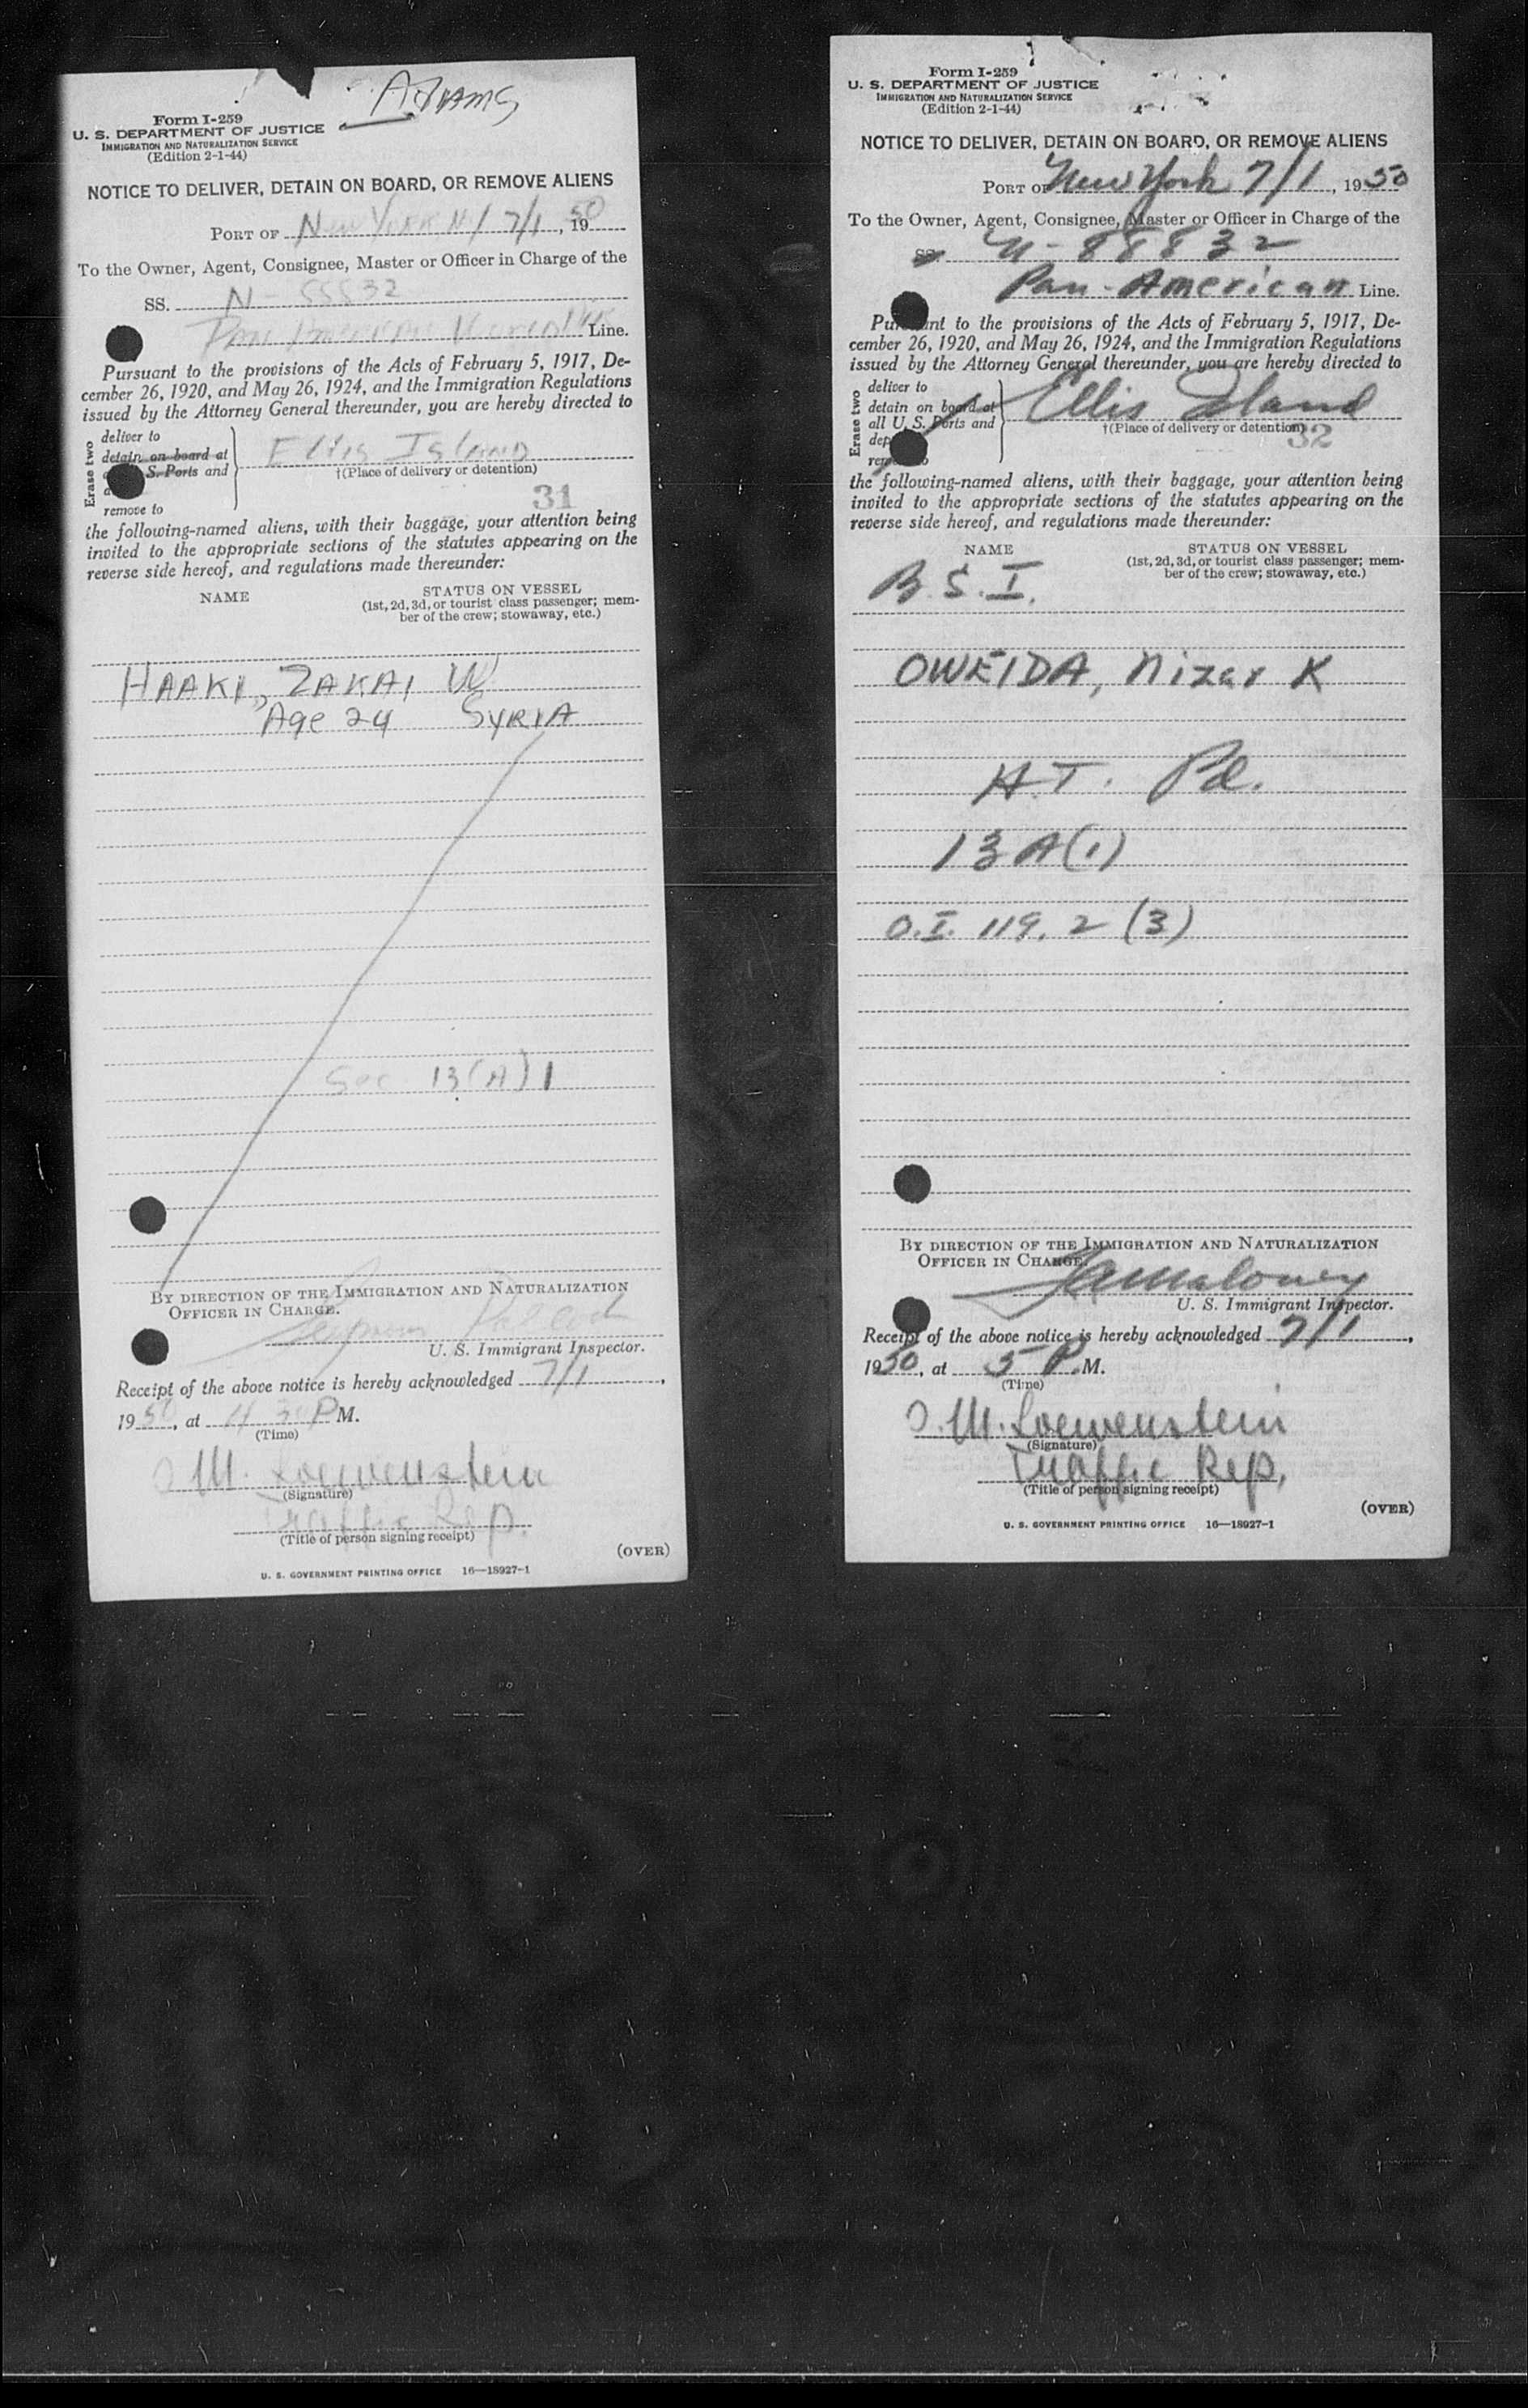 ADAMS
Form I-259
U. S. DEPARTMENT OF JUSTICE
IMMIGRATION AND NATURALIZATION SERVICE
(Edition 2-1-44)
NOTICE TO DELIVER, DETAIN ON BOARD, OR REMOVE ALIENS
PORT OF New York NY 7/1, 1950
To the Owner, Agent, Consignee, Master or Officer in Charge of the
SS. N-88832
Pan American Line.
Pursuant to the provisions of the Acts of February 5, 1917, De-
cember 26, 1920, and May 26, 1924, and the Immigration Regulations
issued by the Attorney General thereunder, you are hereby directed to
Erase two
deliver to
detain on board at
S. Ports and
remove to
Ellis Island
†(Place of delivery or detention)
31
the following-named aliens, with their baggage, your attention being
invited to the appropriate sections of the statutes appearing on the
reverse side hereof, and regulations made thereunder:
NAME
STATUS ON VESSEL
(1st, 2d, 3d, or tourist class passenger; mem-
ber of the crew; stowaway, etc.)
HAAKI, ZAKAI W
Age 24 SYRIA
Sec 13(A)1
BY DIRECTION OF THE IMMIGRATION AND NATURALIZATION
OFFICER IN CHARGE.
U. S. Immigrant Inspector.
Receipt of the above notice is hereby acknowledged 7/1,
1950, at 4 30 P M.
(Time)
O. M. Loewenstein
(Signature)
Traffic Rep.
(Title of person signing receipt)
(OVER)
U. S. GOVERNMENT PRINTING OFFICE 16—18927-1
Form I-259
U. S. DEPARTMENT OF JUSTICE
IMMIGRATION AND NATURALIZATION SERVICE
(Edition 2-1-44)
NOTICE TO DELIVER, DETAIN ON BOARD, OR REMOVE ALIENS
PORT OF New York 7/1, 1950
To the Owner, Agent, Consignee, Master or Officer in Charge of the
SS. N-88832
Pan-American Line.
Pursuant to the provisions of the Acts of February 5, 1917, De-
cember 26, 1920, and May 26, 1924, and the Immigration Regulations
issued by the Attorney General thereunder, you are hereby directed to
Erase two
deliver to
detain on board at
all U. S. Ports and
Ellis Island
†(Place of delivery or detention)
32
the following-named aliens, with their baggage, your attention being
invited to the appropriate sections of the statutes appearing on the
reverse side hereof, and regulations made thereunder:
NAME
STATUS ON VESSEL
(1st, 2d, 3d, or tourist class passenger; mem-
ber of the crew; stowaway, etc.)
B.S.I.
OWEIDA, Nizar K
H.T. Pd.
13 A(1)
O.I. 119.2 (3)
BY DIRECTION OF THE IMMIGRATION AND NATURALIZATION
OFFICER IN CHARGE.
Maloney
U. S. Immigrant Inspector.
Receipt of the above notice is hereby acknowledged 7/1,
1950, at 5 P.M.
(Time)
O. M. Loewenstein
(Signature)
Traffic Rep.
(Title of person signing receipt)
(OVER)
U. S. GOVERNMENT PRINTING OFFICE 16—18927-1